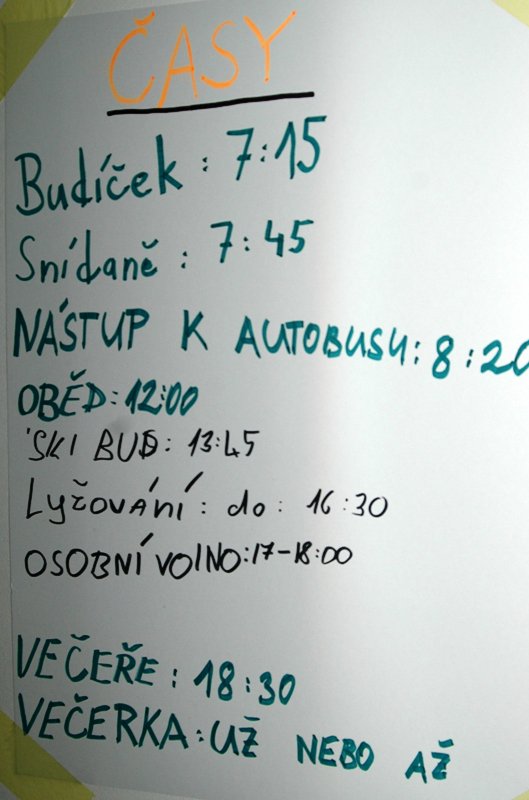 ČASY
Budíček: 7:15
Snídaně: 7:45
NÁSTUP K AUTOBUSU: 8:20
OBĚD: 12:00
'SKI BUS: 13:45
Lyžování: do: 16:30
OSOBNÍ VOLNO: 17-18:00
VEČEŘE: 18:30
VEČERKA: UŽ NEBO AŽ